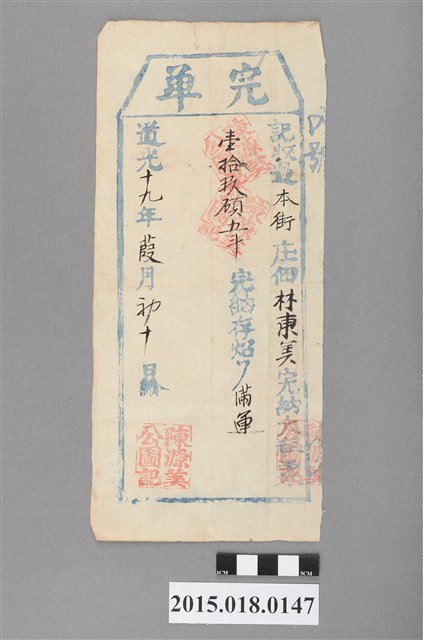 完單
記收過本街庄佃林東美完納大租粟
壹拾玖碩五斗
完納存炤 滿運
道光十九年葭月初十日給
陳源美
公圖記
2015.018.0147